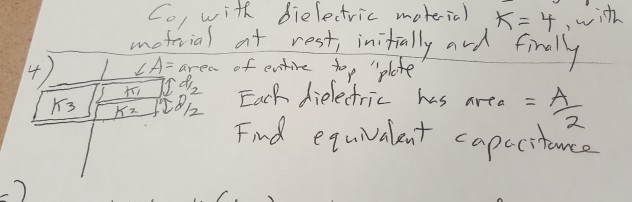 C₀, with dielectric material K = 4, with
material at rest, initially and finally
4) A = area of entire top "plate
K1 d/2
K3 K2 d/2 Each dielectric has area = A/2
Find equivalent capacitance